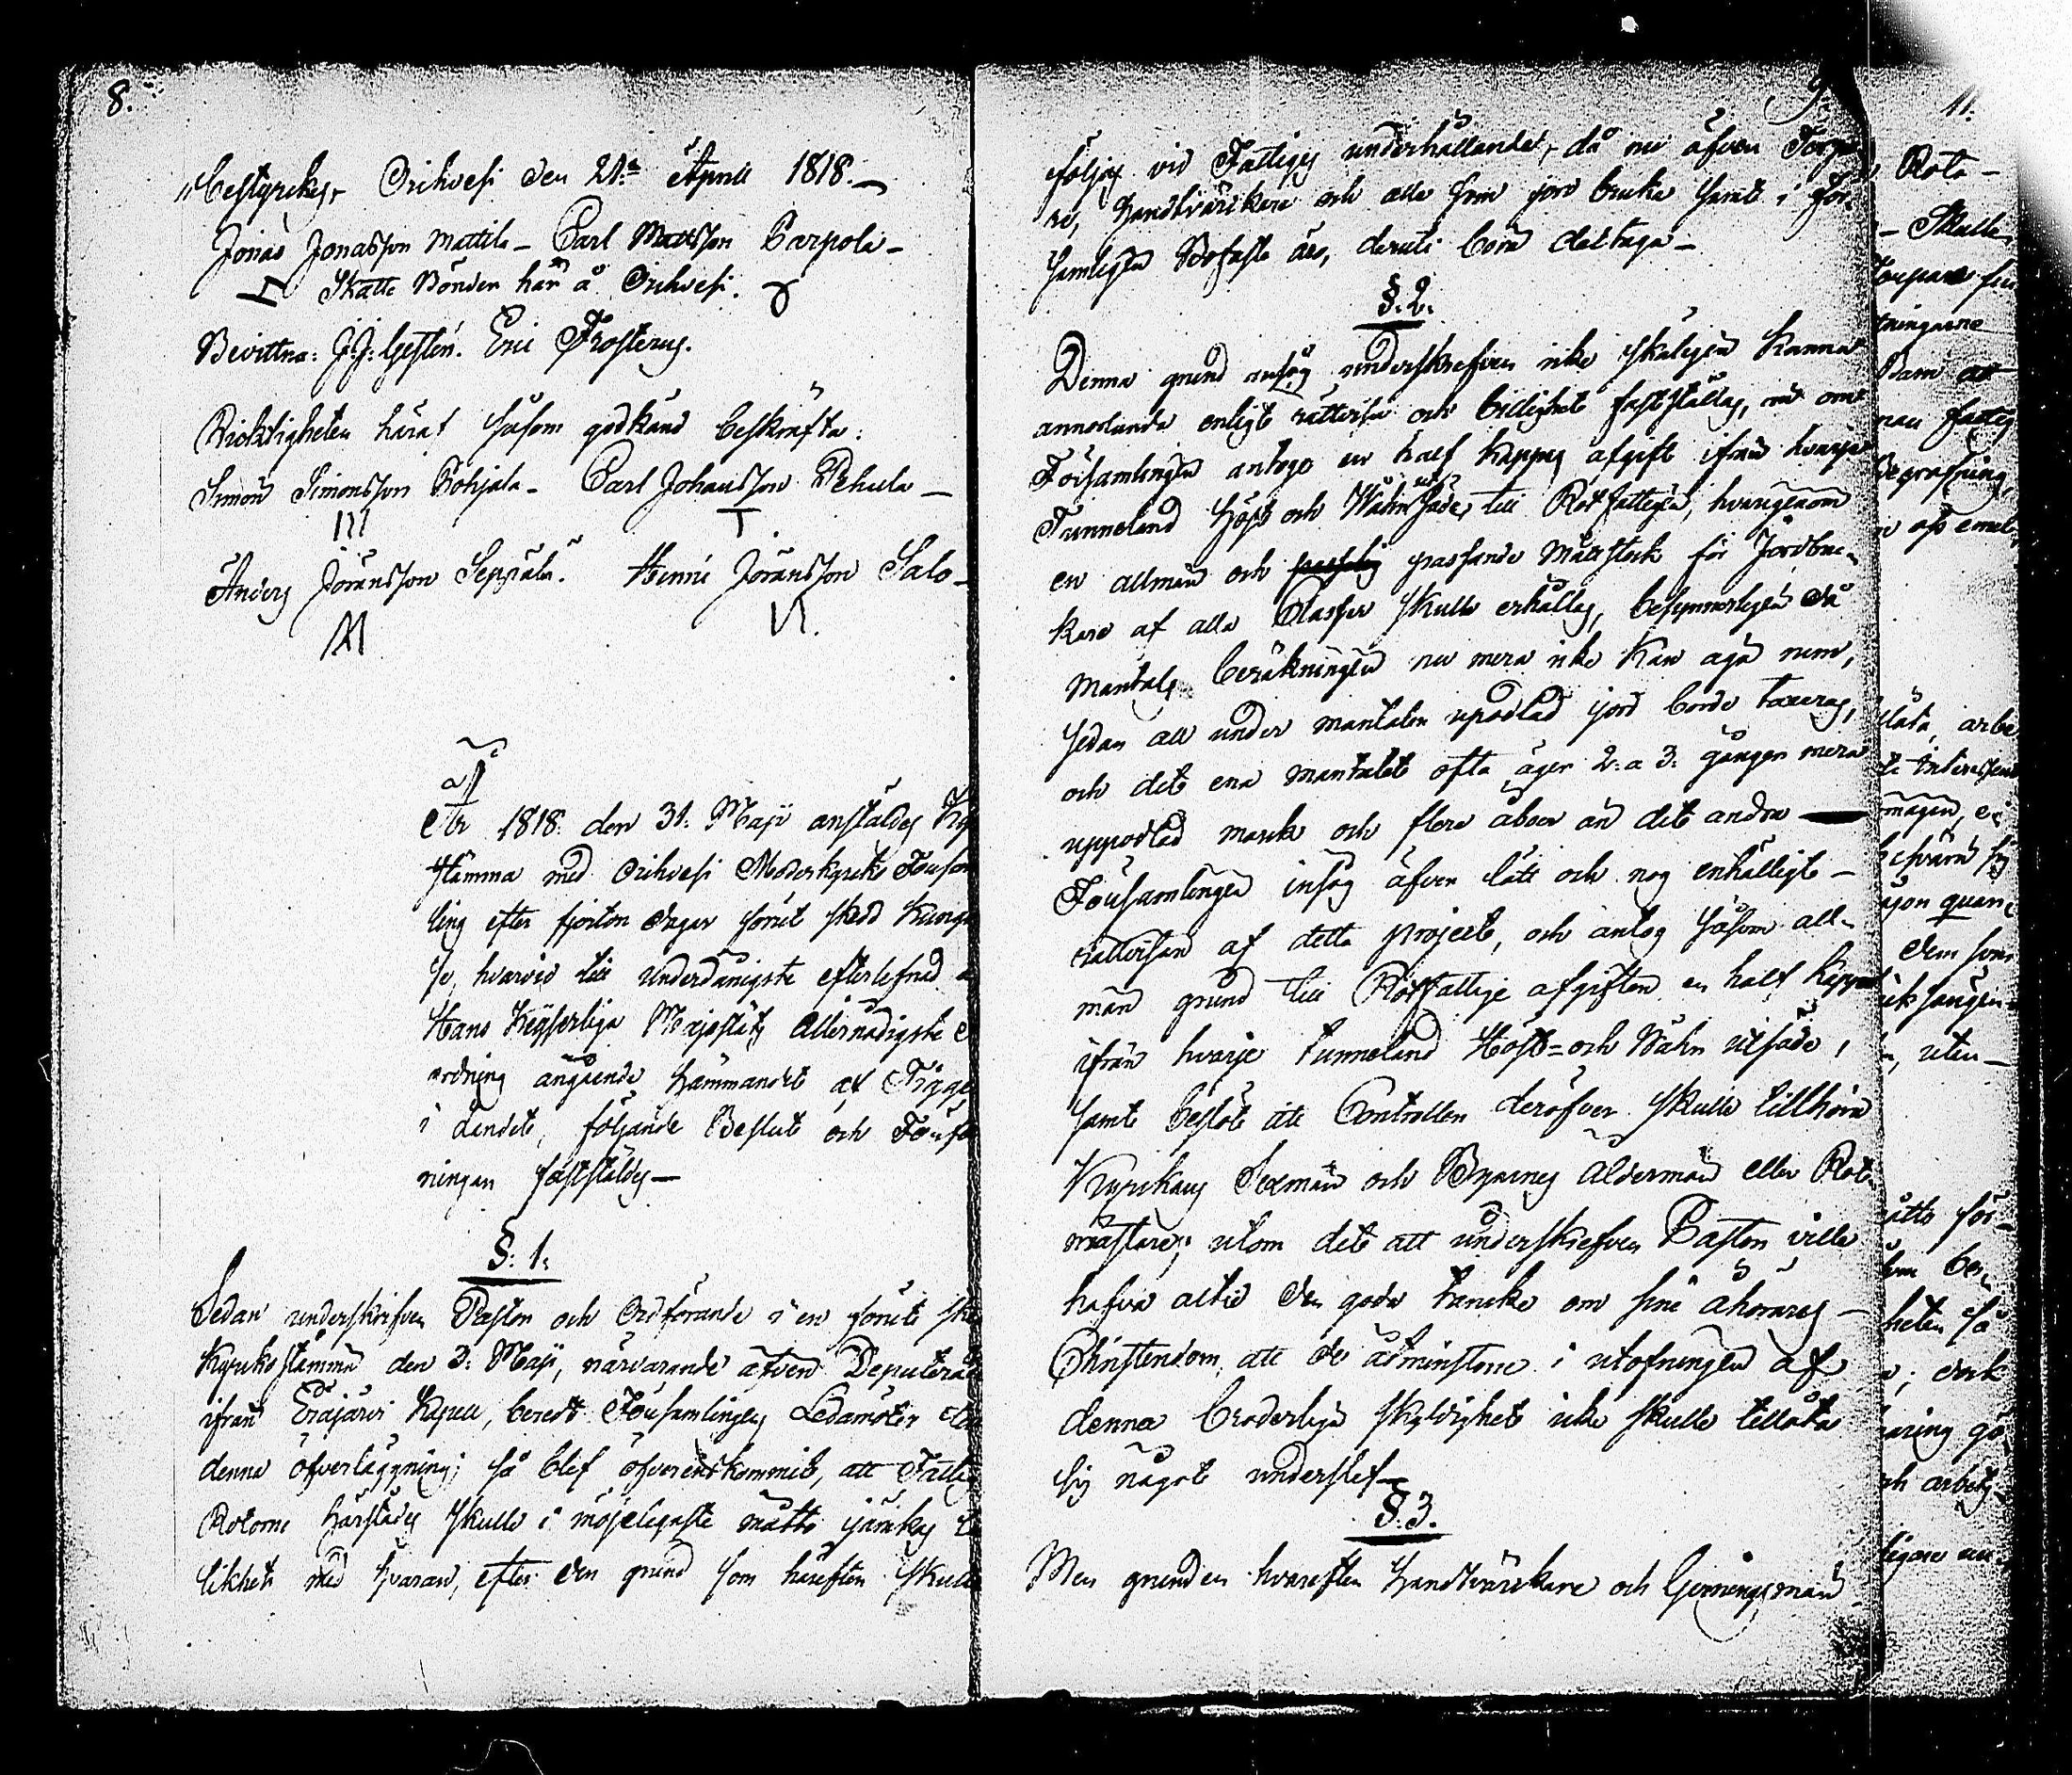 8.
bestyrkes, Orihvesi den 21:a April 1818.
Jonas Jonasson Mattila - Carl Mattsson Parpola -
Skatte Bönder här å Orihvesi.
Bevittna: J.J: Gestén. Eric Frosterus.
Ricktigheten häraf såsom godkänd bekräfta:
Simon Simonsson Pohjala - Carl Johansson Pehula -
Anders Jöransson Seppälä. Henric Jöransson Salo -
År 1818 den 31: Maji anstäldes
stämma med Orihvesi Moderkyrko Församl
ling efter fjorton dagar förut skedd Kungö
se, hvarvid till underdånigste efterlefnad
Hans Kejserliga Majestäts Allernådigste
ordning angående hämmandet af Tigge
i Landet, följande Beslut och Förfa
ningar fastställdes -
§: 1:
Sedan underskrifven Pastor och Ordförande i en förut
Kyrkostämma den 3: Maji, närvarande äfven Deputerade
ifrån Eräjärvi Kapell, beredt Församlingens Ledamöter
denna öfverläggning; så blef öfverenskommit, att Fattig
Rotorne härstädes skulle i möjeligaste måtto jämkas
likhet med hvaran, efter den grund som härefter skulle
9.
följas vid Fattigas underhållandet, då nu äfven Torpa
re, Handtvärkare och alla som jord bruka samt i För-
samlingen Bofaste äro, deruti böra deltaga -
§. 2.
Denna grund ansåg underskrefven icke skäligen kunna
annorlunda enligt rättvisa och billighet fastställas, än om
Församlingen antoge en half kappas afgift ifrån hvarje
Tunneland Höst och Wåhrutsäde, till Rotfattigen, hvarigenom
en allmän och passande Måttstock för Jordbru-
kare af alla Classer skulle erhållas, besynnerligen då
Mantals beräkningen nu mera icke kan äga rum,
sedan all under mantalen upodlad jord borde taxeras,
och det ena mantalet ofta äger 2: a 3: gånger mera
uppodlad mark och flere åboer än det andra -
Församlingen insåg äfven lätt och nog enhälligt -
rättvisan af detta project, och antog såsom all-
män grund till Rotfattige afgiften en half kappe
ifrån hvarje tunneland Höst= och Wåhr utsäde,
samt beslöt att Controllen deröfver skulle tillhöra
Kyrkans Sexmän och Byarnes Åldermän eller Rot-
mästare; utom det att underskrefven Pastor ville
hafva altid den goda tancke om sine åhörares -
Christendom, att de åtminstone i utöfningen af
denna broderliga skyldighet icke skulle tillåta
sig något underslef -
§. 3.
Men grunden hvarefter Handtvärkare och Gerningsmän
11.
Rota -
- Skulle
ningarne
Barn
fattig
Begrafning,
arbe
quan
dem som
uten -
åtto för-
heten så
dock
och arbets